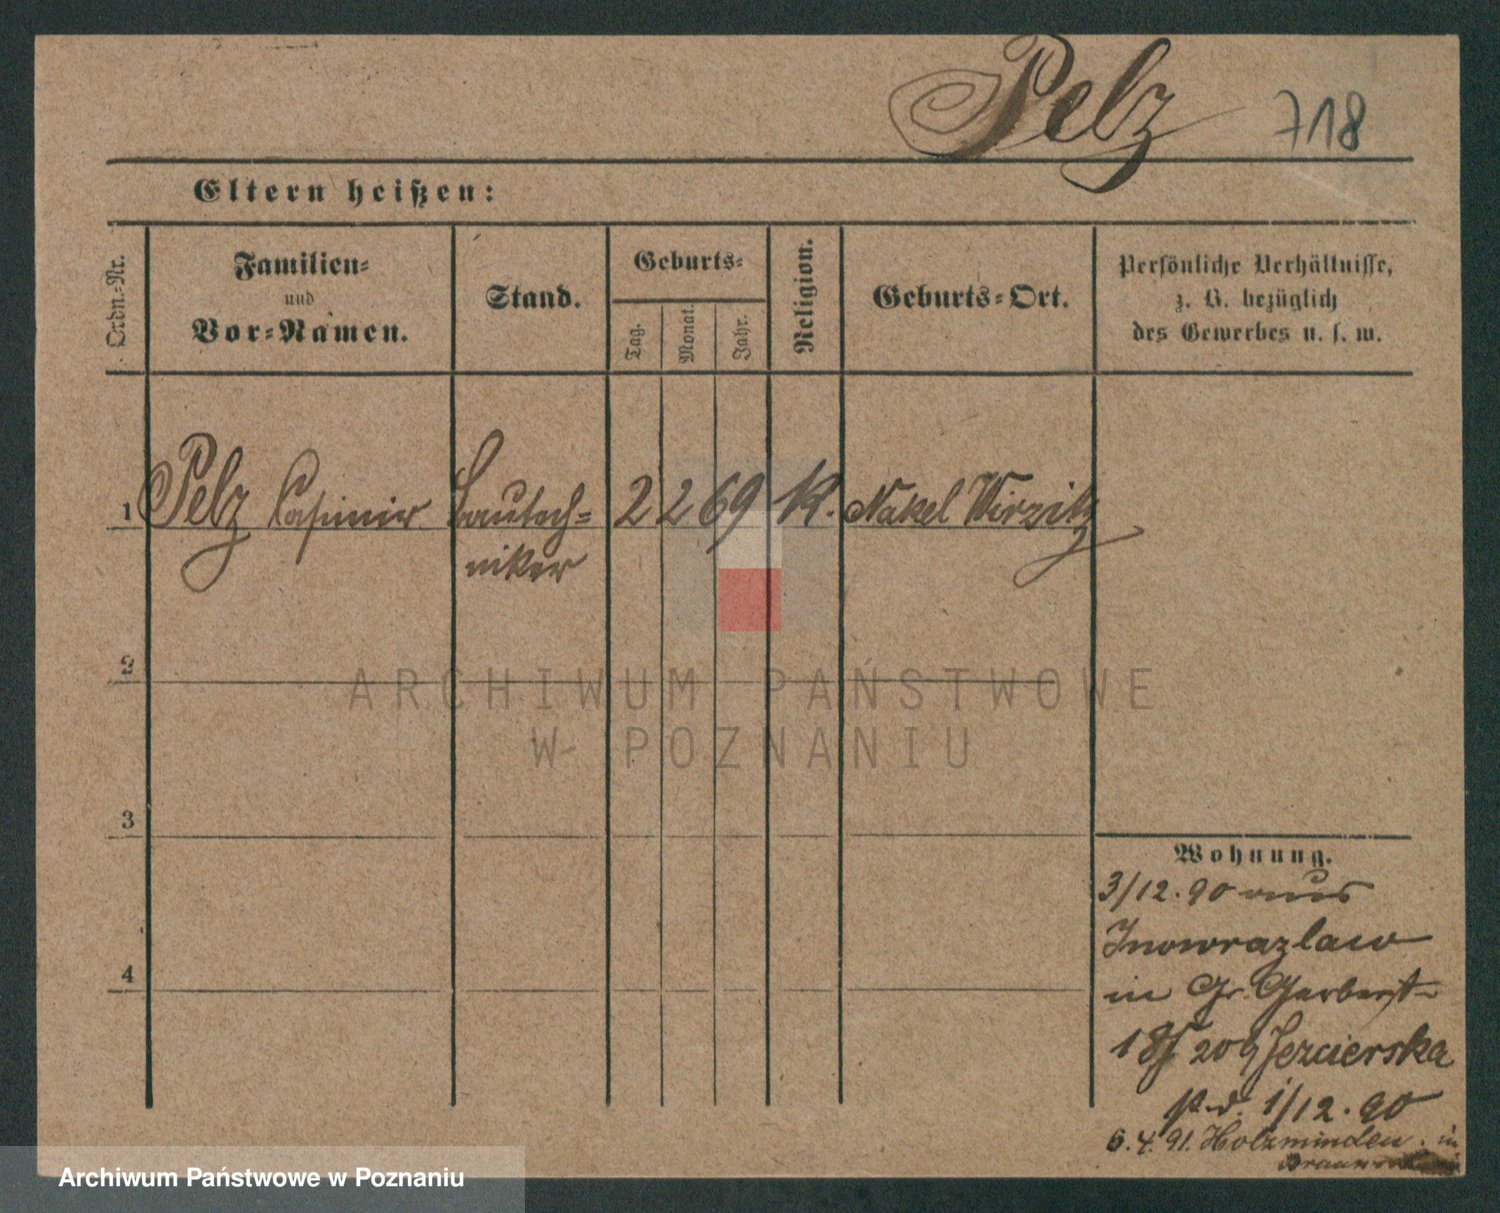 Pelz 718
Eltern heißen:
Ordn.-Nr.
Familien-
und
Vor-Namen.
Stand.
Geburts-
Tag.
Monat.
Jahr.
Religion.
Geburts-Ort.
Persönliche Verhältnisse,
z. B. bezüglich
des Gewerbes u. s. w.
1 Pelz Casimir Bautech- 2 2 69 K. Nakel Wirzitz
niker
2
3
4
Wohnung.
3/12.90 aus
Inowrazlaw
in Gr. Gerberst
18 209 Jezierska
p.d. 1/12.90
6.4.91. Holzminden. in
ARCHIWUM PAŃSTWOWE
W POZNANIU
Archiwum Państwowe w Poznaniu